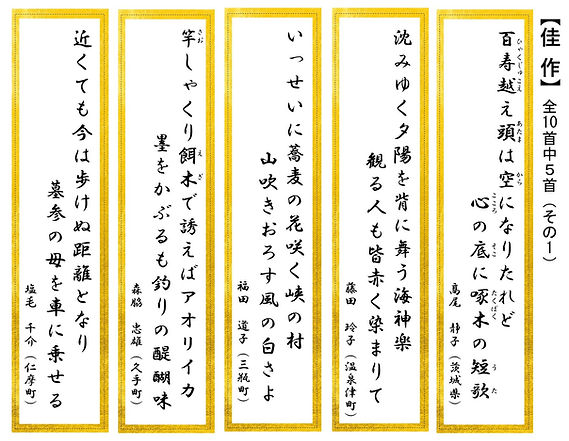 【佳作】 全10首中5首（その1）
百寿越え頭は空になりたれど
心の底に啄木の短歌
高尾 静子（茨城県）
沈みゆく夕陽を背に舞う海神楽
観る人も皆赤く染まりて
藤田 玲子（温泉津町）
いっせいに蕎麦の花咲く峡の村
山吹きおろす風の白さよ
福田 道子（三瓶町）
竿しゃくり餌木で誘えばアオリイカ
墨をかぶるも釣りの醍醐味
森脇 忠雄（久手町）
近くても今は歩けぬ距離となり
墓参の母を車に乗せる
塩毛 千介（仁摩町）